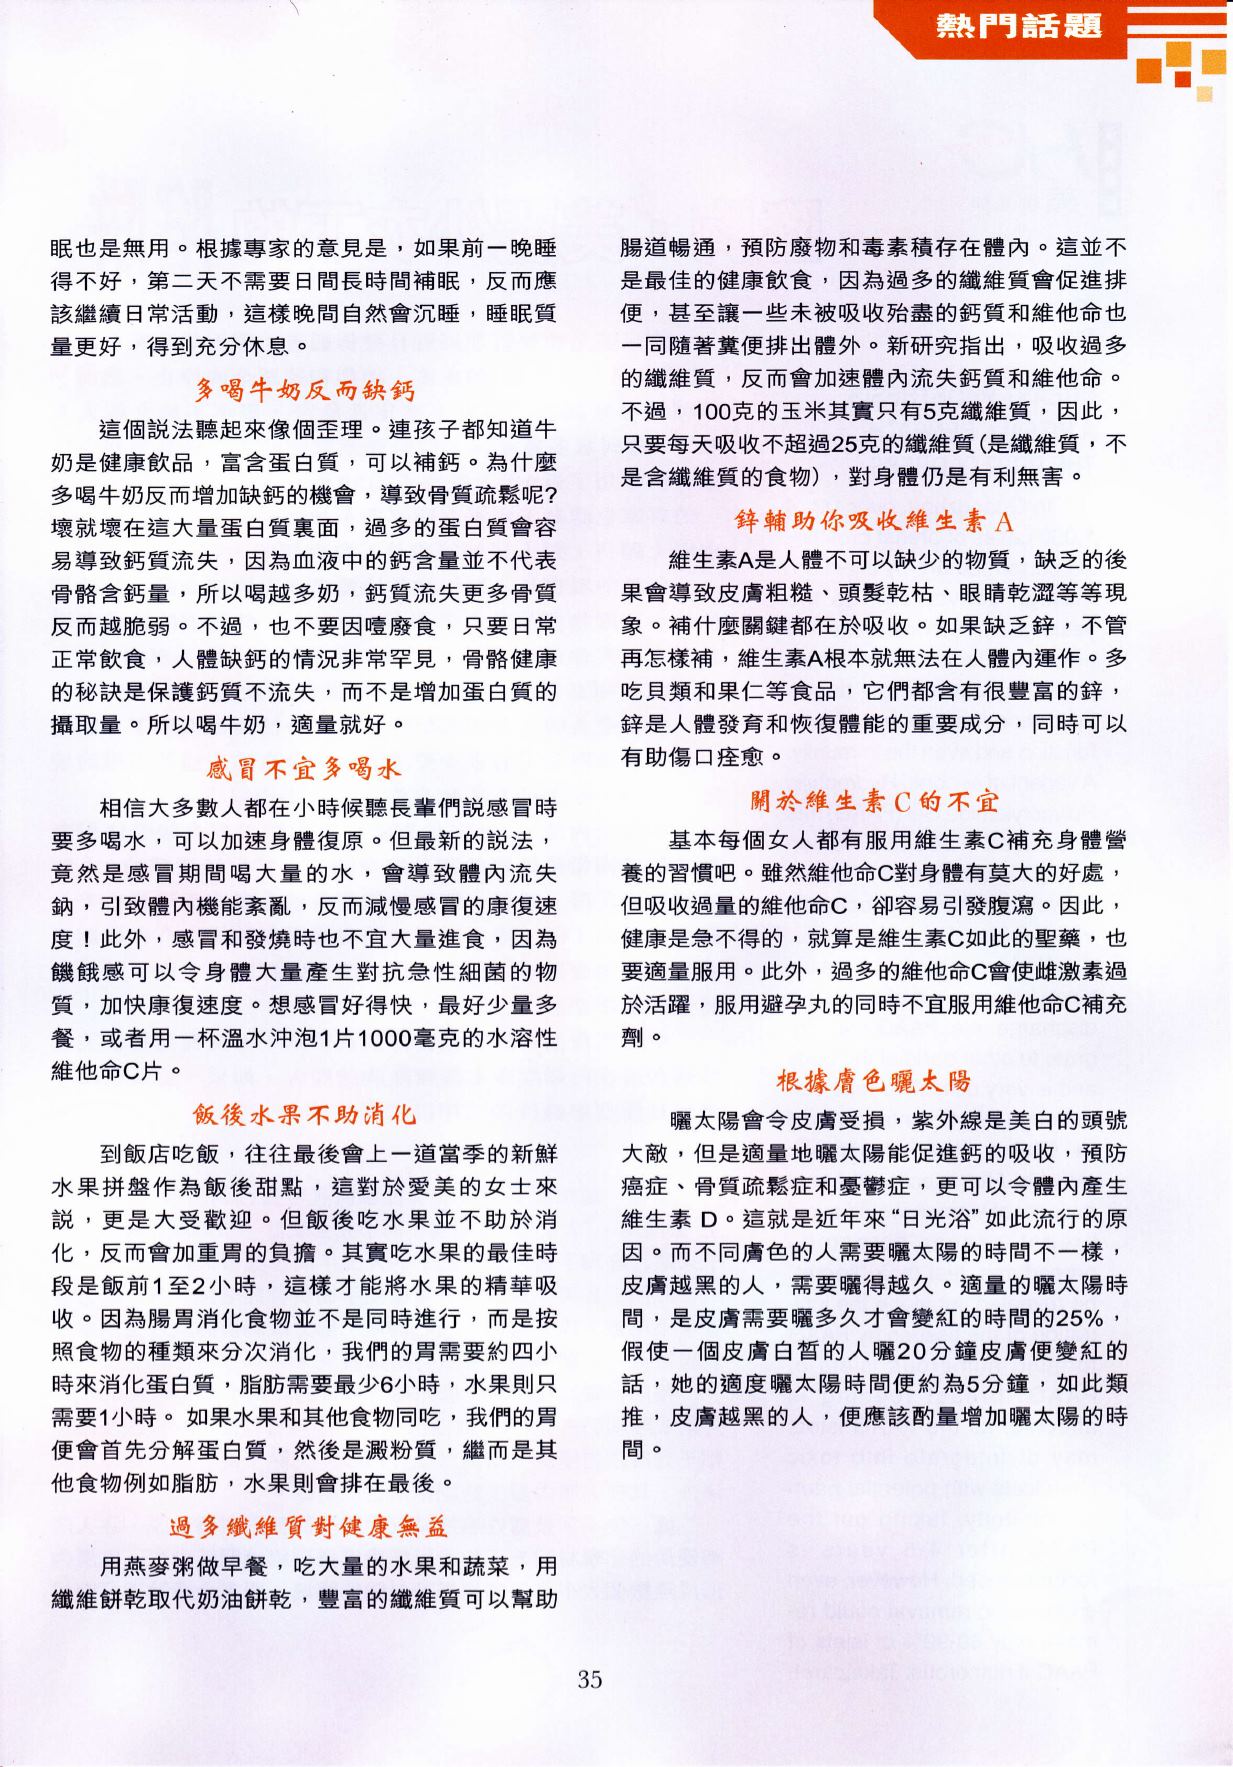 熱門話題
眠也是無用。根據專家的意見是，如果前一晚睡
得不好，第二天不需要日間長時間補眠，反而應
該繼續日常活動，這樣晚間自然會沉睡，睡眠質
量更好，得到充分休息。
多喝牛奶反而缺鈣
這個説法聽起來像個歪理。連孩子都知道牛
奶是健康飲品，富含蛋白質，可以補鈣。為什麼
多喝牛奶反而增加缺鈣的機會，導致骨質疏鬆呢?
壞就壞在這大量蛋白質裏面，過多的蛋白質會容
易導致鈣質流失，因為血液中的鈣含量並不代表
骨骼含鈣量，所以喝越多奶，鈣質流失更多骨質
反而越脆弱。不過，也不要因噎廢食，只要日常
正常飲食，人體缺鈣的情況非常罕見，骨骼健康
的秘訣是保護鈣質不流失，而不是增加蛋白質的
攝取量。所以喝牛奶，適量就好。
感冒不宜多喝水
相信大多數人都在小時候聽長輩們説感冒時
要多喝水，可以加速身體復原。但最新的説法，
竟然是感冒期間喝大量的水，會導致體內流失
鈉，引致體內機能紊亂，反而減慢感冒的康復速
度！此外，感冒和發燒時也不宜大量進食，因為
饑餓感可以令身體大量產生對抗急性細菌的物
質，加快康復速度。想感冒好得快，最好少量多
餐，或者用一杯溫水沖泡1片1000毫克的水溶性
維他命C片。
飯後水果不助消化
到飯店吃飯，往往最後會上一道當季的新鮮
水果拼盤作為飯後甜點，這對於愛美的女士來
説，更是大受歡迎。但飯後吃水果並不助於消
化，反而會加重胃的負擔。其實吃水果的最佳時
段是飯前1至2小時，這樣才能將水果的精華吸
收。因為腸胃消化食物並不是同時進行，而是按
照食物的種類來分次消化，我們的胃需要約四小
時來消化蛋白質，脂肪需要最少6小時，水果則只
需要1小時。 如果水果和其他食物同吃，我們的胃
便會首先分解蛋白質，然後是澱粉質，繼而是其
他食物例如脂肪，水果則會排在最後。
過多纖維質對健康無益
用燕麥粥做早餐，吃大量的水果和蔬菜，用
纖維餅乾取代奶油餅乾，豐富的纖維質可以幫助
腸道暢通，預防廢物和毒素積存在體內。這並不
是最佳的健康飲食，因為過多的纖維質會促進排
便，甚至讓一些未被吸收殆盡的鈣質和維他命也
一同隨著糞便排出體外。新研究指出，吸收過多
的纖維質，反而會加速體內流失鈣質和維他命。
不過，100克的玉米其實只有5克纖維質，因此，
只要每天吸收不超過25克的纖維質(是纖維質，不
是含纖維質的食物)，對身體仍是有利無害。
鋅輔助你吸收維生素 A
維生素A是人體不可以缺少的物質，缺乏的後
果會導致皮膚粗糙、頭髮乾枯、眼睛乾澀等等現
象。補什麼關鍵都在於吸收。如果缺乏鋅，不管
再怎樣補，維生素A根本就無法在人體內運作。多
吃貝類和果仁等食品，它們都含有很豐富的鋅，
鋅是人體發育和恢復體能的重要成分，同時可以
有助傷口痊愈。
關於維生素 C 的不宜
基本每個女人都有服用維生素C補充身體營
養的習慣吧。雖然維他命C對身體有莫大的好處，
但吸收過量的維他命C，卻容易引發腹瀉。因此，
健康是急不得的，就算是維生素C如此的聖藥，也
要適量服用。此外，過多的維他命C會使雌激素過
於活躍，服用避孕丸的同時不宜服用維他命C補充
劑。
根據膚色曬太陽
曬太陽會令皮膚受損，紫外線是美白的頭號
大敵，但是適量地曬太陽能促進鈣的吸收，預防
癌症、骨質疏鬆症和憂鬱症，更可以令體內產生
維生素 D。這就是近年來“日光浴”如此流行的原
因。而不同膚色的人需要曬太陽的時間不一樣，
皮膚越黑的人，需要曬得越久。適量的曬太陽時
間，是皮膚需要曬多久才會變紅的時間的25%，
假使一個皮膚白皙的人曬20分鐘皮膚便變紅的
話，她的適度曬太陽時間便約為5分鐘，如此類
推，皮膚越黑的人，便應該酌量增加曬太陽的時
間。
35